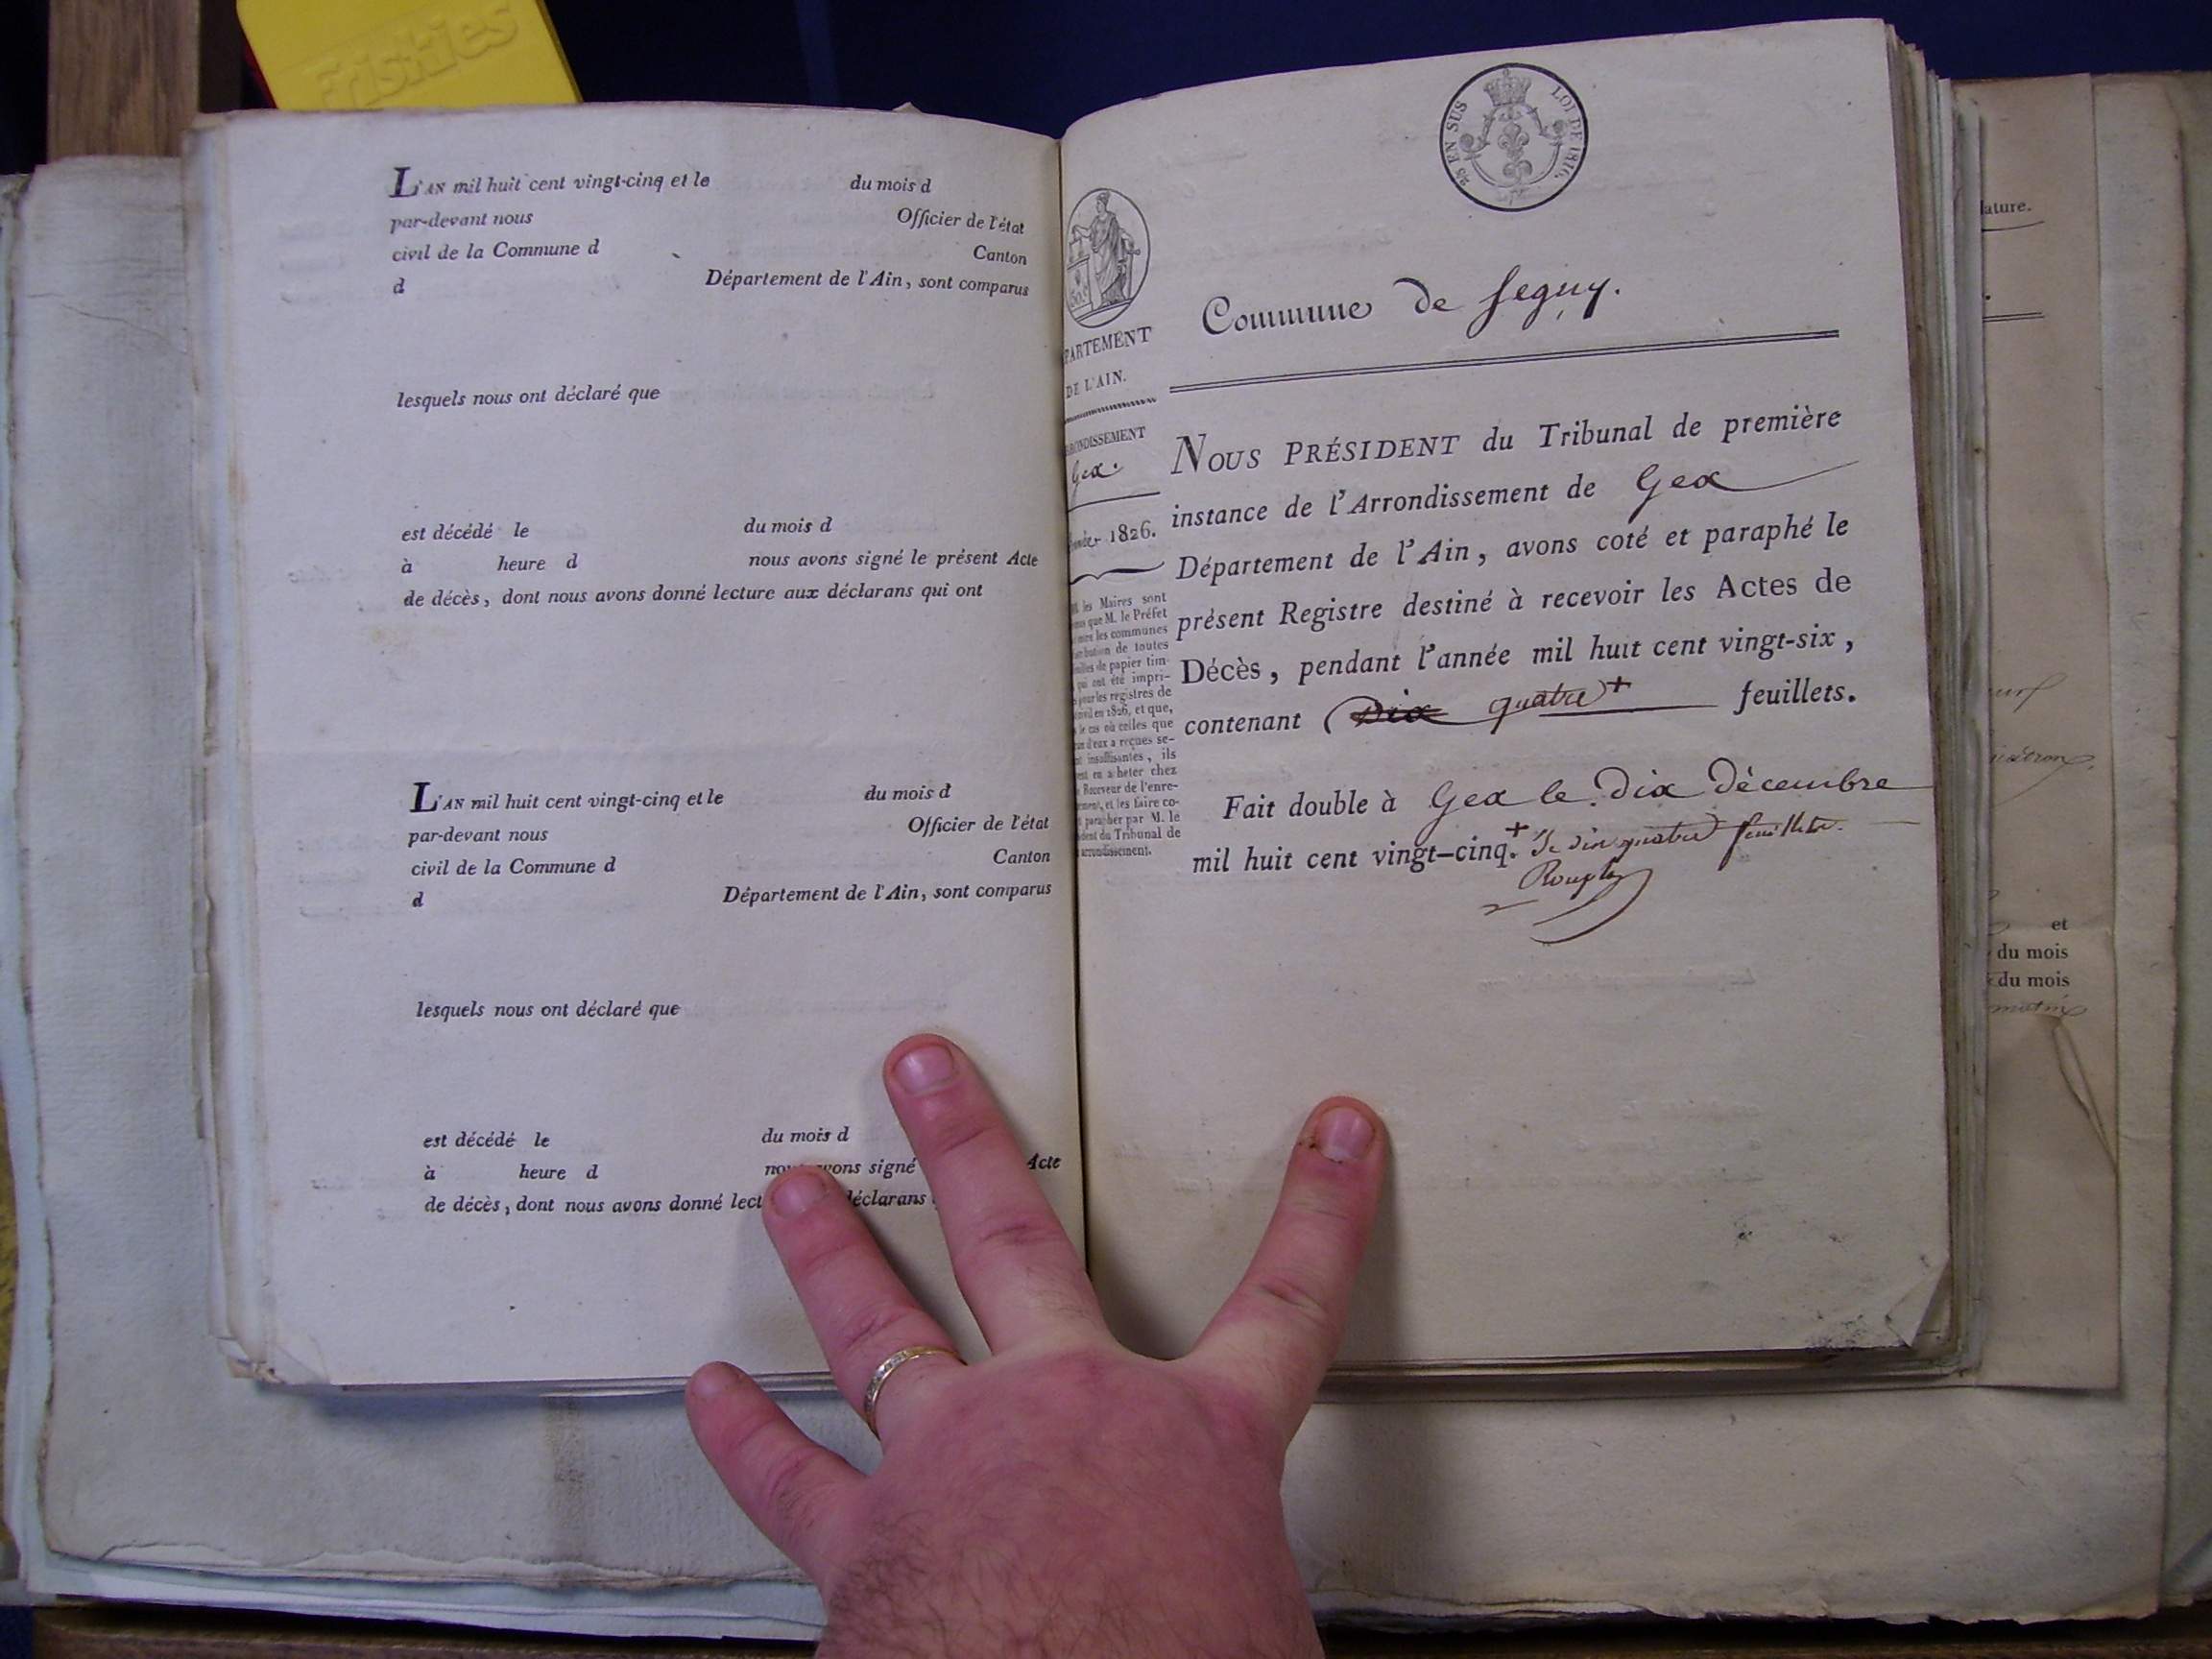 Friskies
L'AN mil huit cent vingt-cinq et le du mois d
par-devant nous Officier de l'état
civil de la Commune d Canton
d Département de l'Ain, sont comparus
lesquels nous ont déclaré que
est décédé le du mois d
à heure d nous avons signé le présent Acte
de décès, dont nous avons donné lecture aux déclarans qui ont
L'AN mil huit cent vingt-cinq et le du mois d
par-devant nous Officier de l'état
civil de la Commune d Canton
d Département de l'Ain, sont comparus
lesquels nous ont déclaré que
est décédé le du mois d
à heure d avons signé Acte
de décès, dont nous avons donné déclarans
25 EN SUS LOI DE 1816.
PARTEMENT
DE L'AIN.
Gex.
1826.
les Maires sont
que M. le Préfet
les communes
de toutes
de papier tim-
qui ont été impri-
pour les registres de
civil en 1826, et que,
le cas où celles que
d'eux a reçues se-
insuffisantes, ils
en acheter chez
Receveur de l'enre-
et les faire co-
parapher par M. le
du Tribunal de
arrondissement.
Commune de Segny.
NOUS PRÉSIDENT du Tribunal de première
instance de l'Arrondissement de Gex
Département de l'Ain, avons coté et paraphé le
présent Registre destiné à recevoir les Actes de
Décès, pendant l'année mil huit cent vingt-six,
contenant Dix quatre + feuillets.
Fait double à Gex le Dix Décembre
mil huit cent vingt-cinq. + quatre feuillets.
ature.
et
du mois
du mois
matin